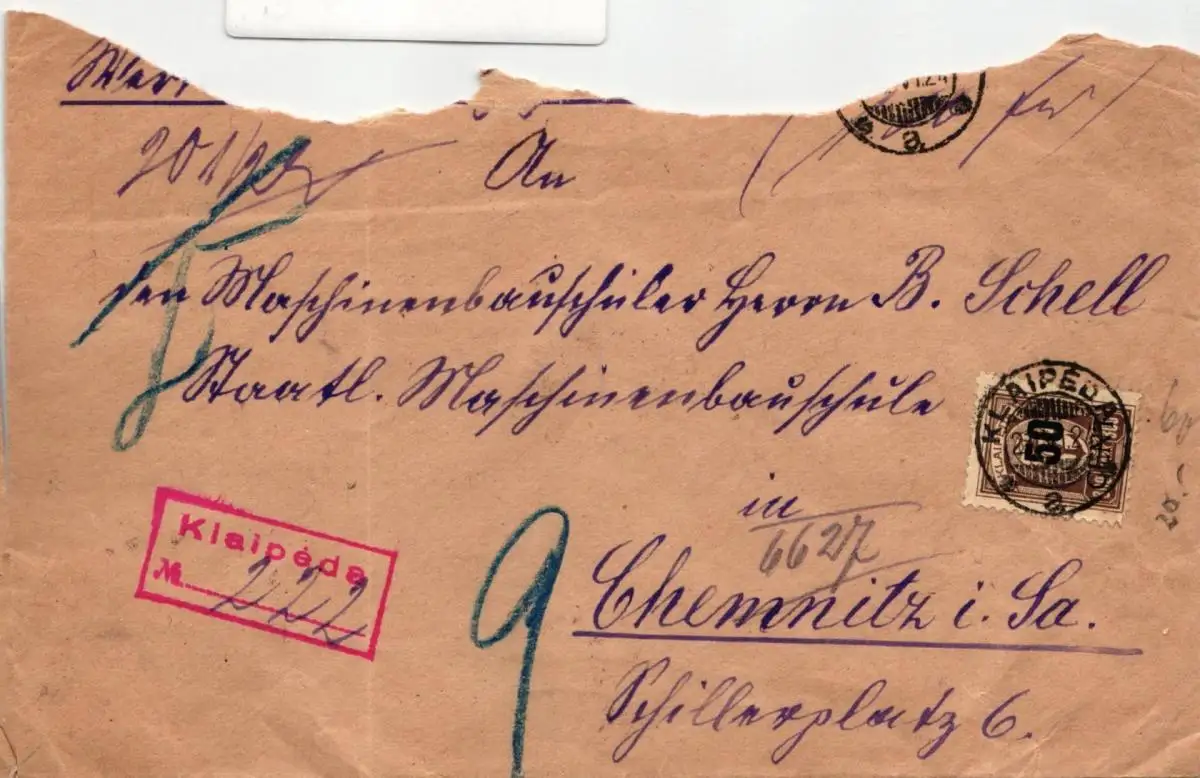 Wert
201/22
An
den Maschinenbauschüler Herrn B. Schell
Staatl. Maschinenbauschule
in
6627
Chemnitz i. Sa.
Schillerplatz 6.
Klaipėda
№ 222
9
KLAIPĖDA
50
a
a
60
20.-